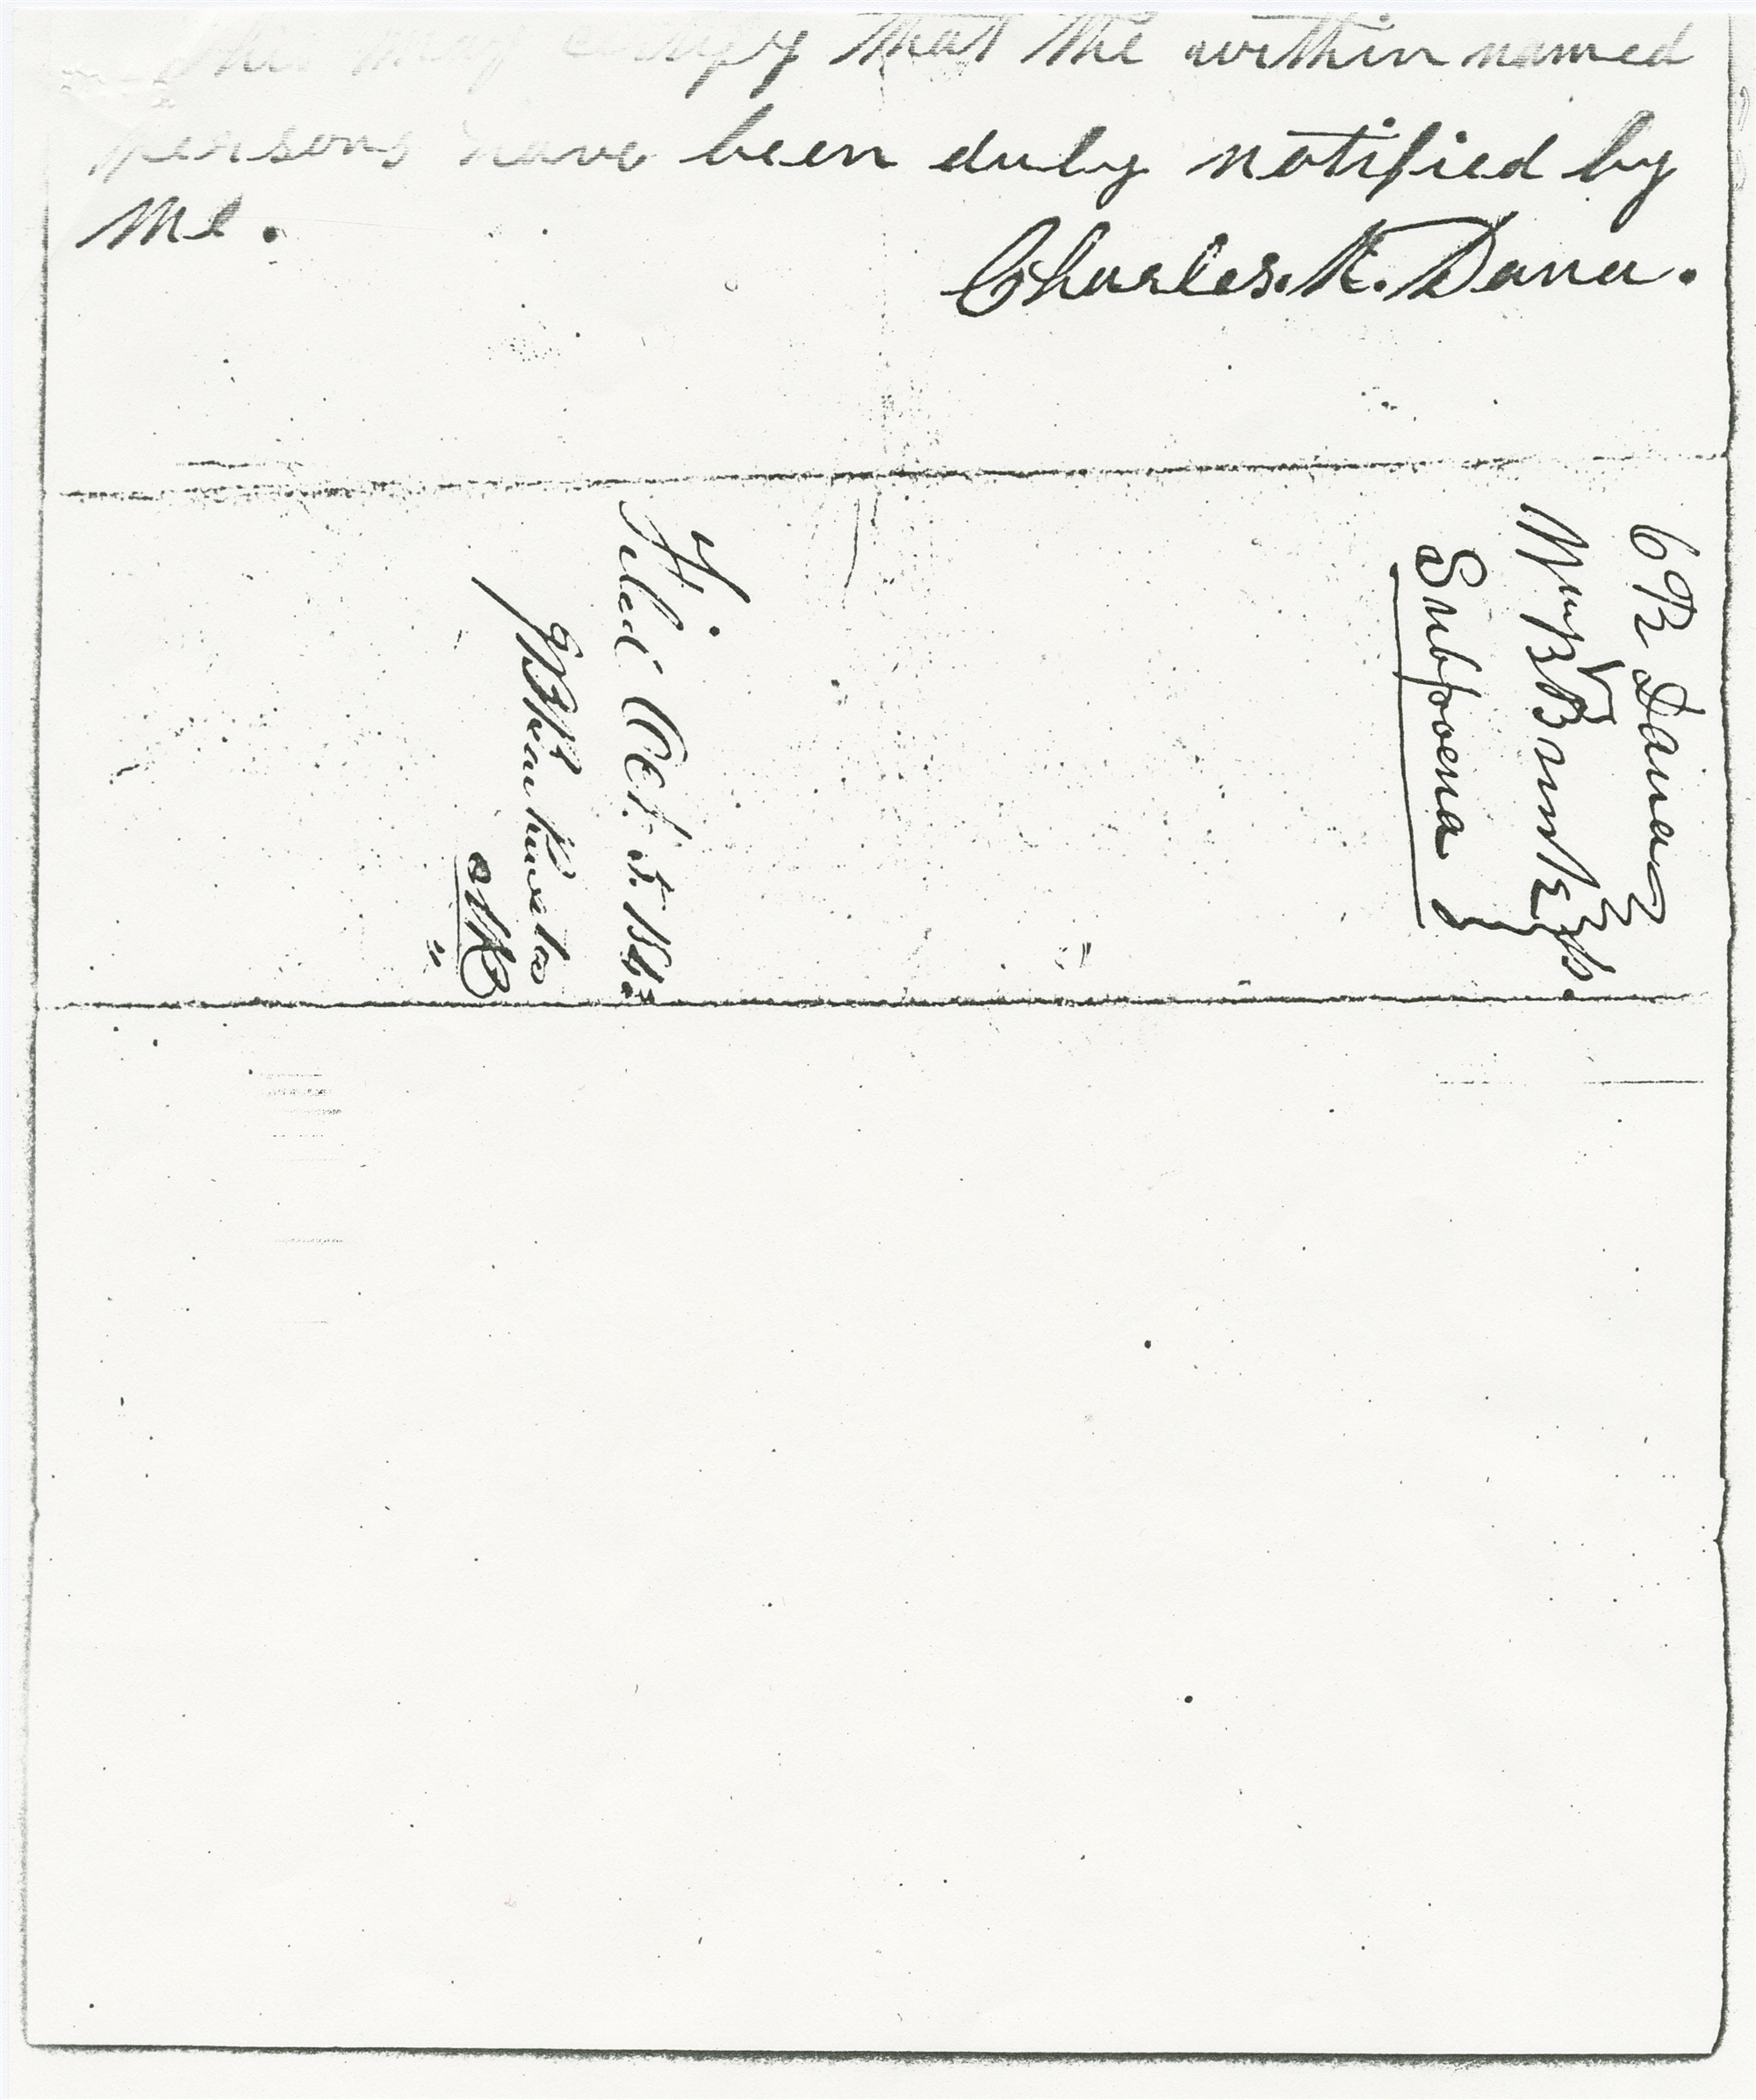 This may certify that the within named
persons have been duly notified by
me.
Charles. R. Dana.
C R Dana
vs
Subpoena
Filed Oct. 5. 184